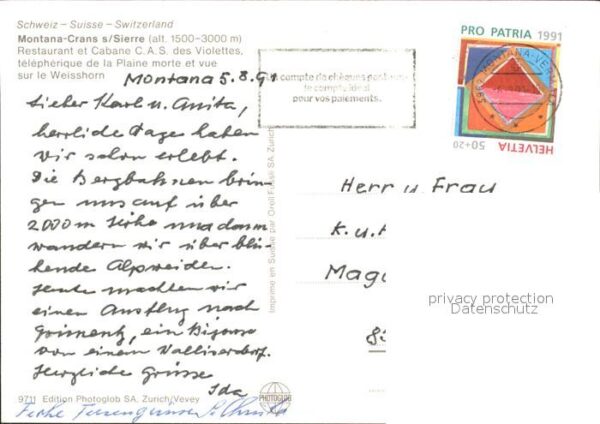 Schweiz – Suisse – Switzerland
Montana-Crans s/Sierre (alt. 1500-3000 m)
Restaurant et Cabane C.A.S. des Violettes,
téléphérique de la Plaine morte et vue
sur le Weisshorn
Montana 5.8.91
Lieber Karl u. Anita,
herrliche Tage haben
wir schon erlebt.
Die Bergbahnen brin-
gen uns auf über
2000 m Höhe und dann
wandern wir über blü-
hende Alpweiden.
Heute machten wir
einen Ausflug nach
Grimentz, ein Bijou
von einem Walliserdorf.
Herzliche Grüsse
Ida
9711 Edition Photoglob SA, Zürich/Vevey
PHOTOGLOB
Imprimé en Suisse par Orell Füssli SA Zurich
Le compte de chèques postaux
le compte idéal
pour vos paiements.
PRO PATRIA 1991
HELVETIA 50+20
Herr u. Frau
K. u. A
Mag
8
privacy protection
Datenschutz